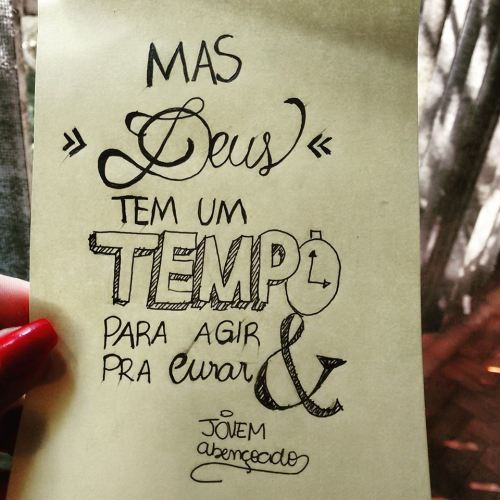 MAS
» Deus «
TEM UM
TEMPO
PARA AGIR &
PRA curar
JOVEM
abençoado